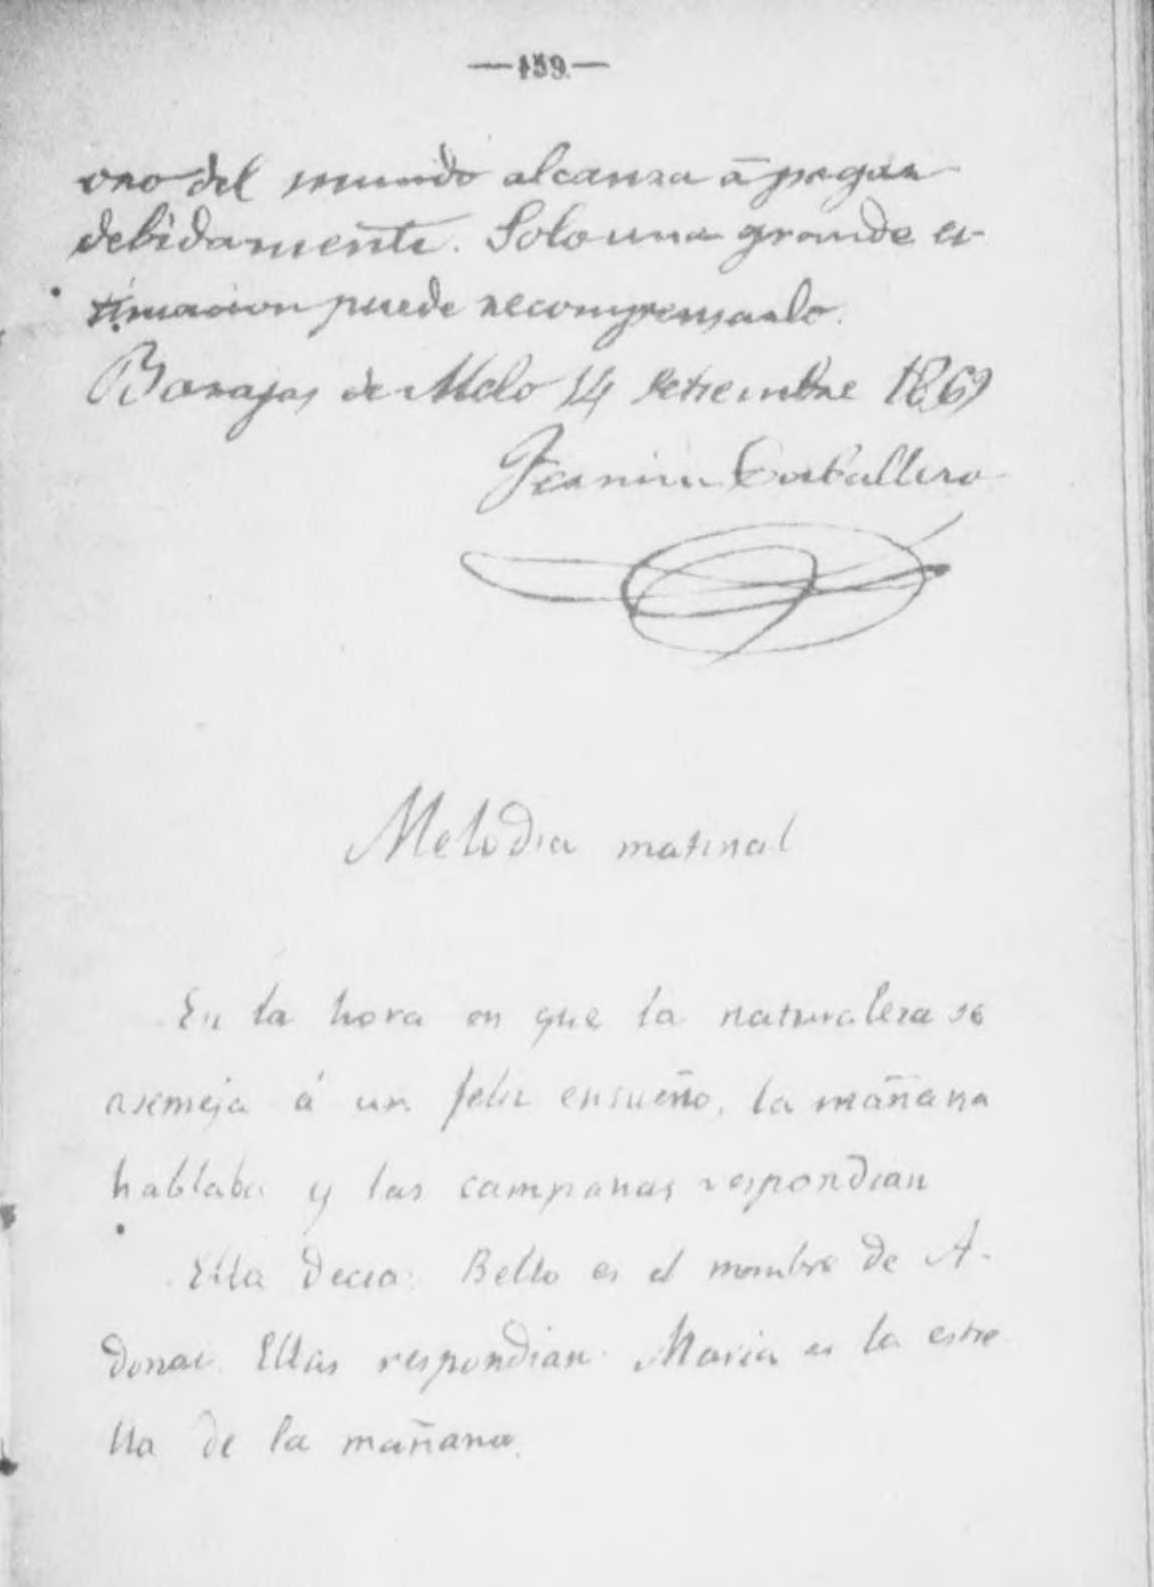 —159—
oro del mundo alcanza á pagar
debidamente. Solo una grande es-
timacion puede recompensarlo.
Barajas de Melo 14 Setiembre 1869
Fermin Caballero
Melodia matinal
En la hora en que la naturaleza se
asemeja á un feliz ensueño, la mañana
hablaba y las campanas respondian
Ella decia: Bello es el nombre de A-
donai. Ellas respondian: Maria es la estre
lla de la mañana.